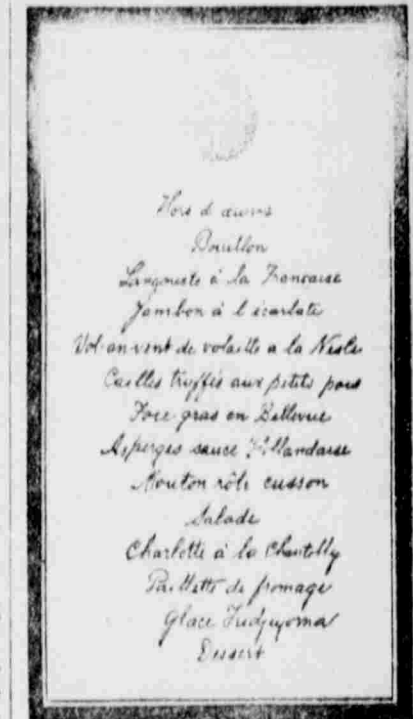 Hors d œuvre
Bouillon
Langouste à la Francaise
Jambon à l écarlate
Vol-au-vent de volaille a la Nesle
Cailles truffés aux petits pois
Foie gras en Bellevue
Asperges sauce Hollandaise
Mouton rôti cusson
Salade
Charlotte à la Chantilly
Paillette de fromage
Glace Fudjiyoma
Dessert